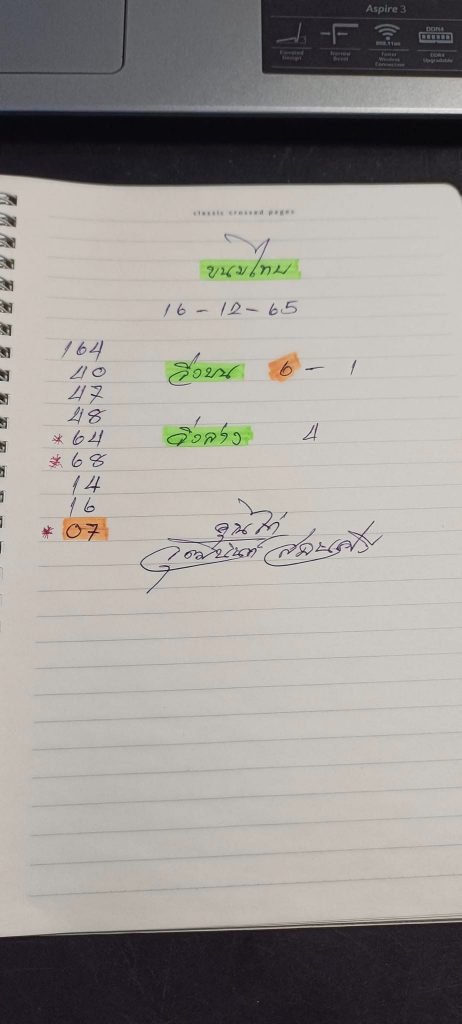 Aspire 3
802.11ac
DDR4
Narrow Bezel
Faster Wireless Connection
DDR4 Upgradable
classic crossed pages
ขนมไทย
16 - 12 - 65
164
40 วิ่งบน 6 - 1
47
48
*64 วิ่งล่าง 4
*68
14
16
*07